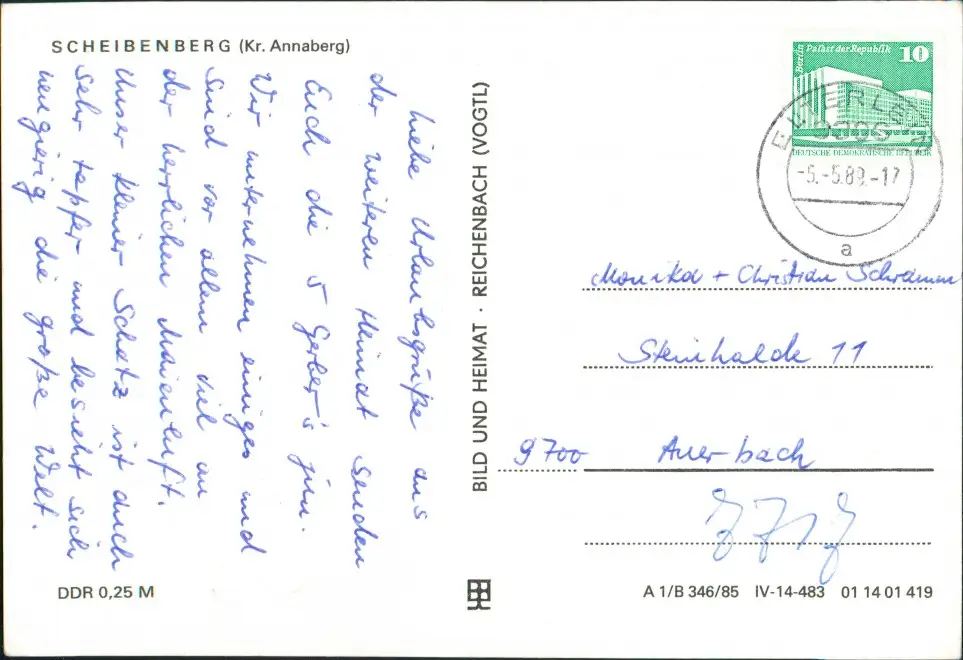 SCHEIBENBERG (Kr. Annaberg)
Liebe Urlaubsgrüße aus
der weiteren Heimat senden
Euch die 5 Gerber's jun.
Wir unternehmen einiges und
sind vor allem viel an
der herrlichen Maienluft.
Unser kleiner Schatz ist auch
sehr tapfer und besieht sich
neugierig die große Welt.
DDR 0,25 M
BILD UND HEIMAT · REICHENBACH (VOGTL)
Berlin Palast der Republik 10
DEUTSCHE DEMOKRATISCHE REPUBLIK
-5.-5.89.-17
a
Monika + Christian Schramm
Steinhalde 11
9700 Auerbach
A 1/B 346/85 IV-14-483 01 14 01 419